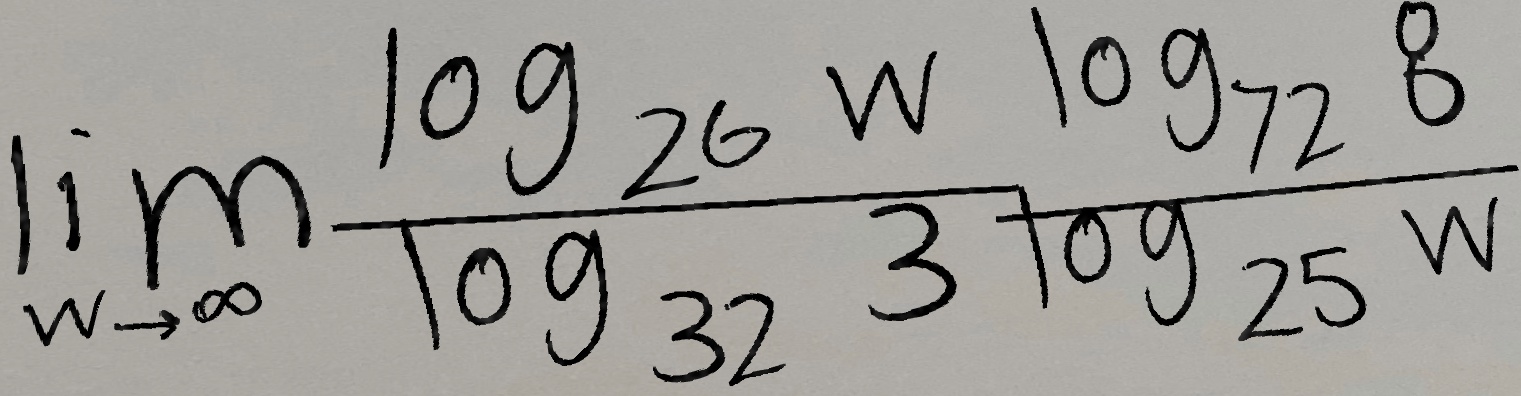 \lim_{w \to \infty} \frac{\log_{26} w}{\log_{32} 3} \frac{\log_{72} 8}{\log_{25} w}